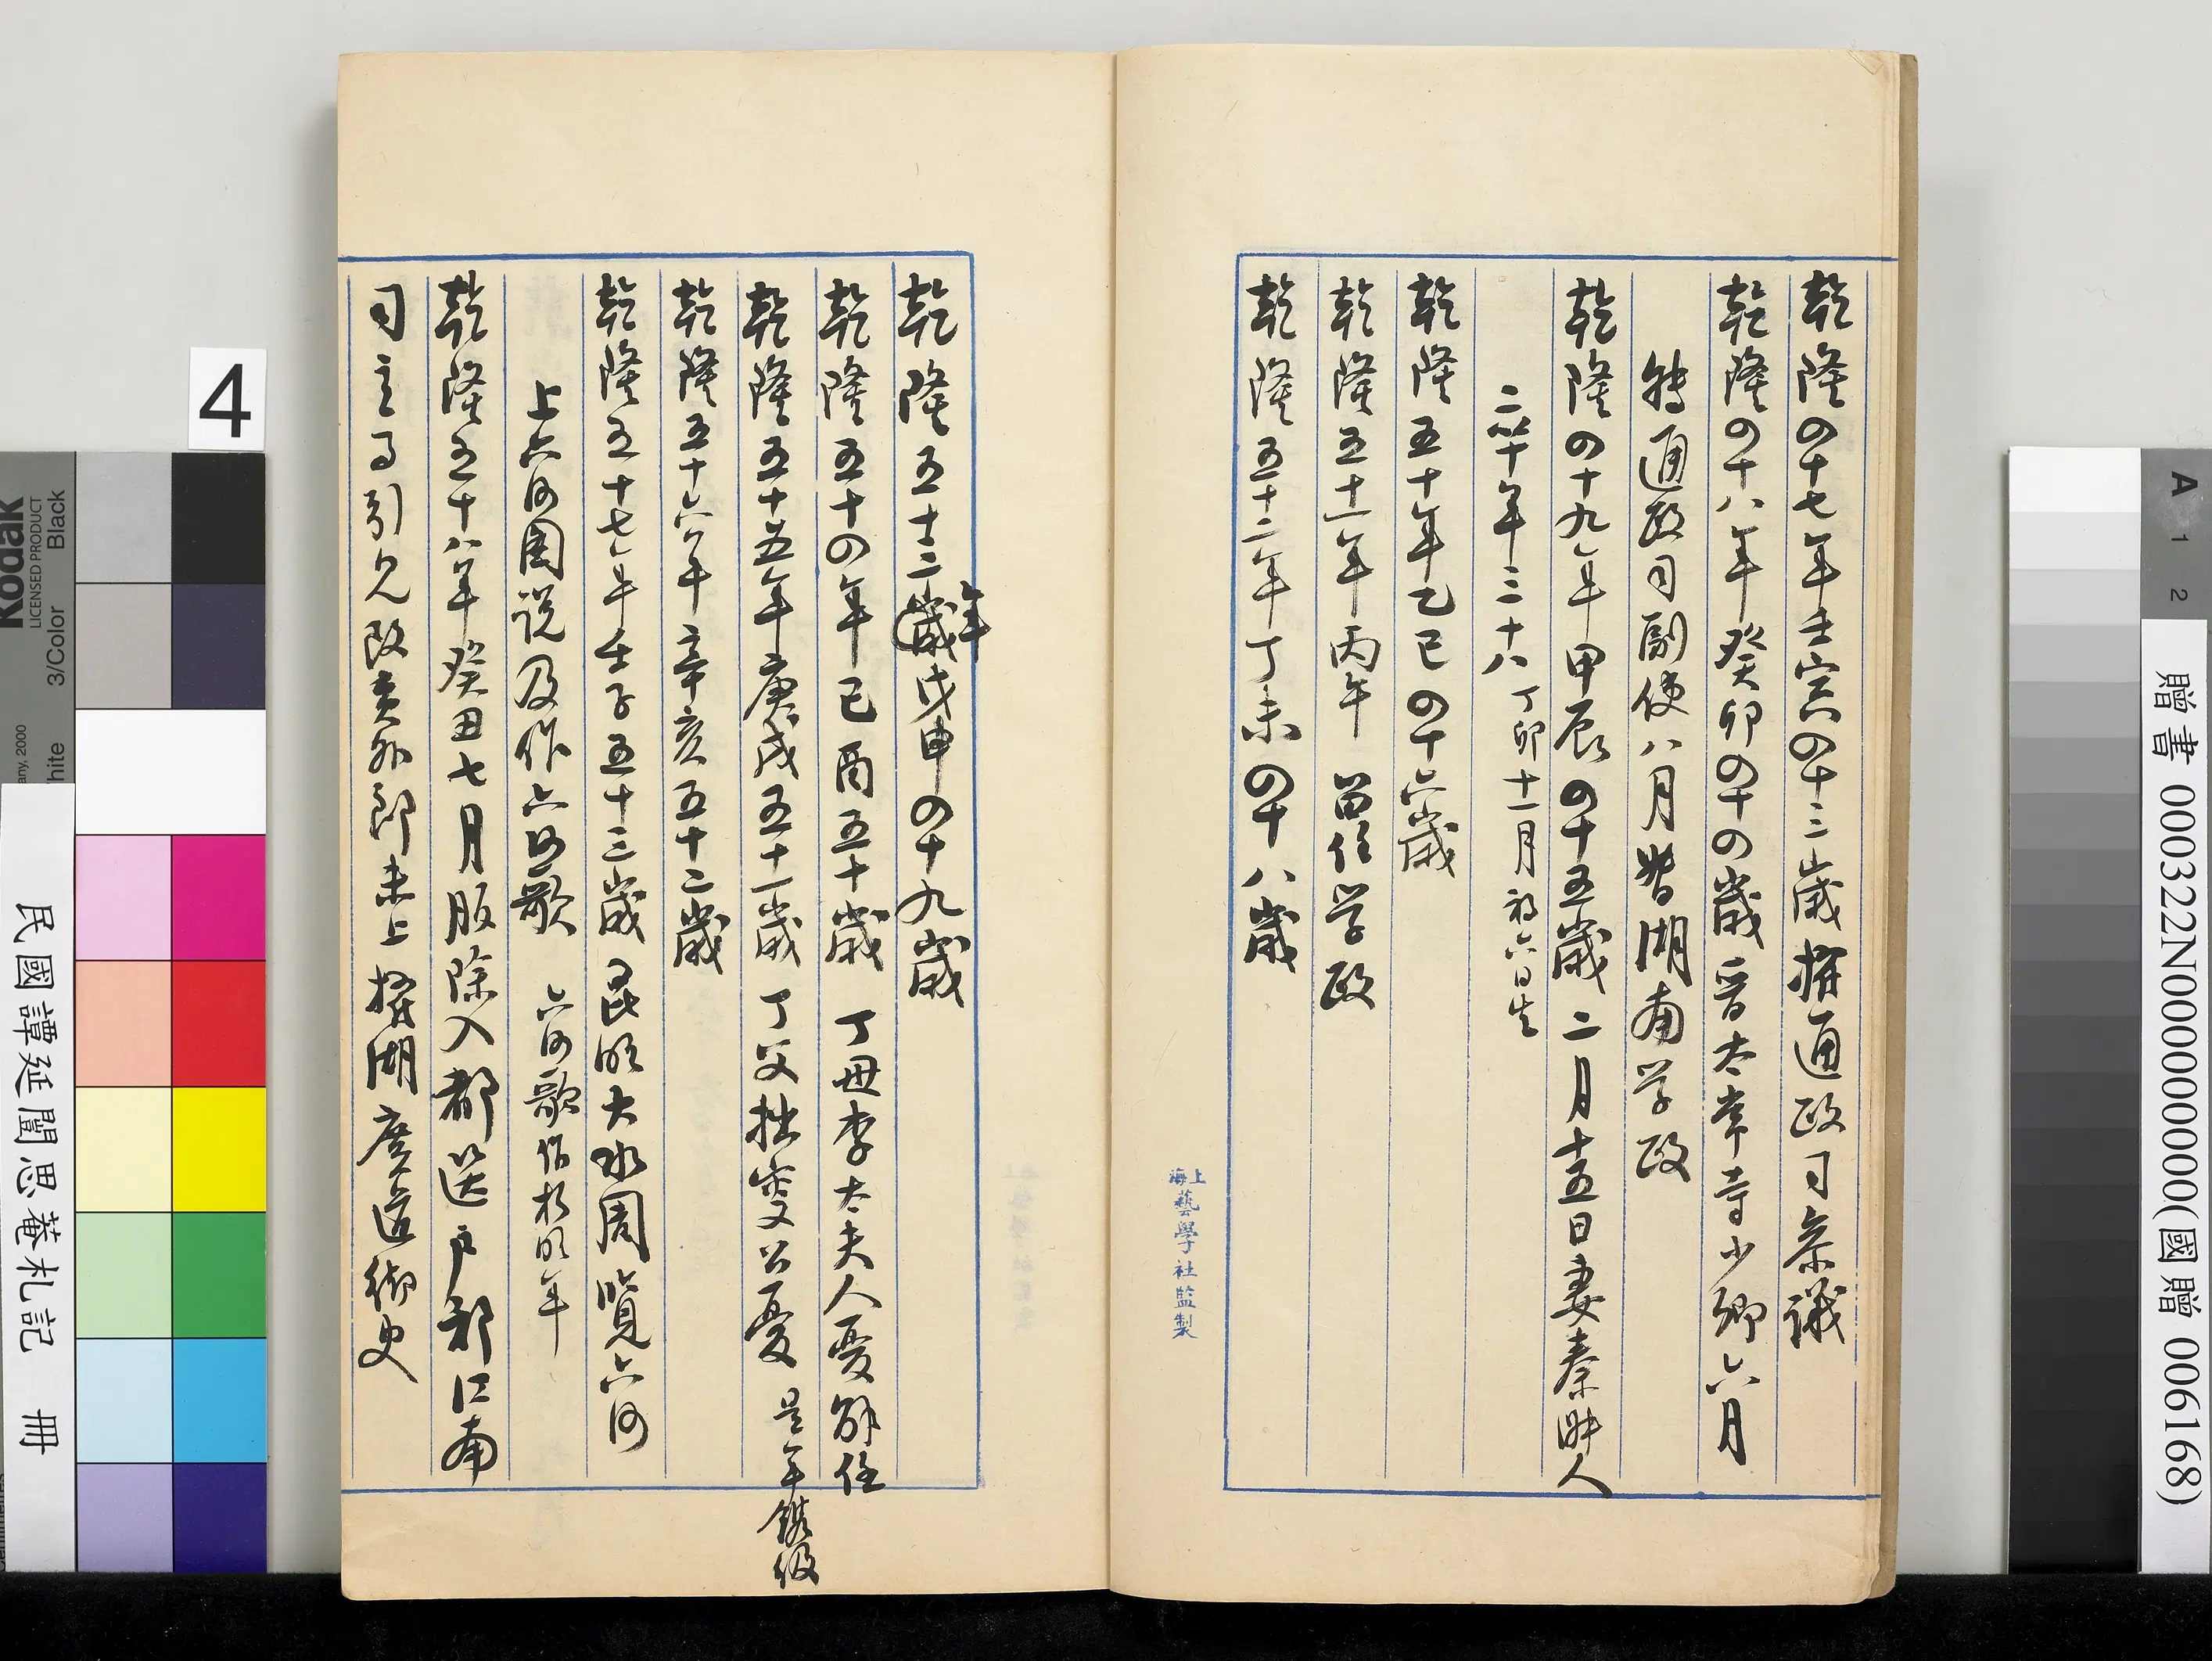 乾隆四十七年壬寅四十三歲擢通政司參議
乾隆四十八年癸卯四十四歲晉太常寺少卿六月
轉通政司副使八月督湖南学政
乾隆四十九年甲辰四十五歲二月十五日妻秦淑人
二十年三十八丁卯十一月初六日生
乾隆五十年乙巳四十六歲
乾隆五十一年丙午 留任学政
乾隆五十二年丁未四十八歲
上海藝學社監製
乾隆五十三歲年戊申四十九歲
乾隆五十四年己酉五十歲 丁母李太夫人憂解任
乾隆五十五年庚戌五十一歲 丁父憂 是年鐫级
乾隆五十六年辛亥五十二歲
乾隆五十七年壬子五十三歲 昆明大水周覽六河
上六河圖说及作六河歌 六河歌作於明年
乾隆五十八年癸丑七月服除入都选户部江南
司主事引見改員外郎未上擢湖廣道御史
4
Kodak
LICENSED PRODUCT
3/Color
Black
any, 2000
hite
民國譚延闓思菴札記 冊
A 1 2
贈書 000322N000000000(國贈 006168)